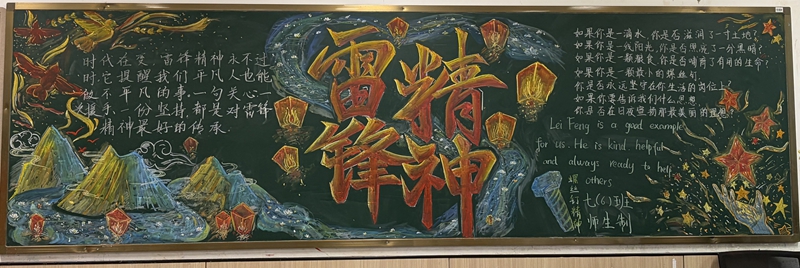 时代在变,雷锋精神永不过
时。它提醒我们平凡人也能
做不平凡的事。一句关心一
援手、一份坚持,都是对雷锋
精神最好的传承.
雷锋
精神
如果你是一滴水,你是否滋润了一寸土地?
如果你是一线阳光,你是否照亮了一分黑暗?
如果你是一颗粮食,你是否哺育了有用的生命?
如果你是一颗最小的螺丝钉,
你是否永远坚守在你生活的岗位上?
如果你要告诉我们什么思想,
你是否在日夜宣扬那最美丽的理想?
Lei Feng is a good example
for us. He is kind, helpful
and always ready to help
others.
螺丝钉精神
七(6)班
师生制